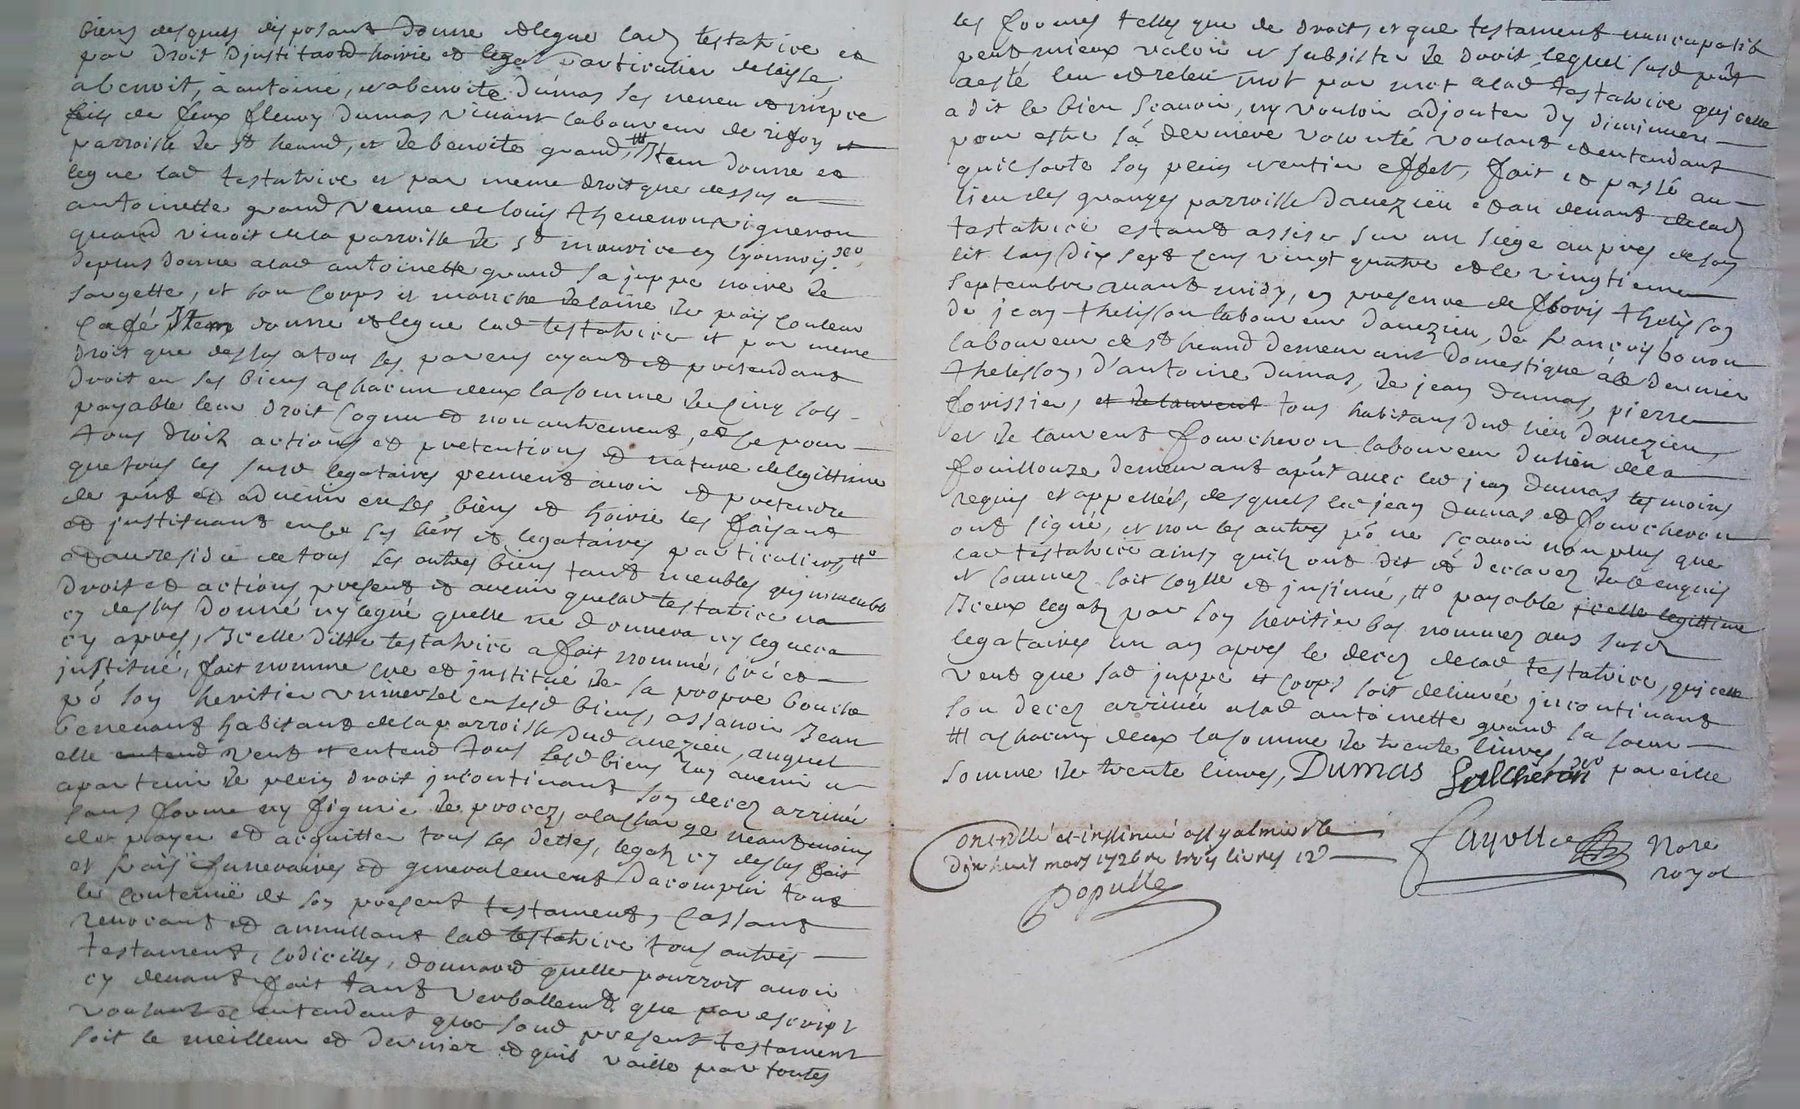 biens desquels disposant donne et legue lad testatrice et
par droit d'justitaord hoirie et legat particulier delaisse
a benoit, a antoine, et a benoite dumas ses neveu et niepce
fils de feux fleury dumas vivant laboureur de
parroisse de st heand, et de benoite grand, # Item donne et
legue lad testatrice et par meme droit que dessus a
antoinette grand veuve de louis thevenon vigneron
quand vivoit de la parroisse de st maurice en lyonnois
deplus donne a lad antoinette grand sa juppe noire de
sargette, et son corps et manche de laine de pais couleur
café, Item donne et legue lad testatrice et par meme
droit que dessus a tous ses parens ayant et pretendant
droit en ses biens a chacun deux la somme de cinq sols
payable leur droit cognu et non autrement, et ce pour
tous droits actions et pretentions et nature de legittime
que tous les susd legataires peuvent avoir et pretendre
de pnt et advenir en ses biens et hoirie les faisant
et justituant en ce ses hers et legataires particuliers, #
et au residu de tous ses autres biens tant meubles que immeubles
droits et actions present et avenir que lad testatrice na
cy dessus donné ny legué quelle ne donnera ny leguera
cy apres, Icelle ditte testatrice a fait nommé, créé et
justitué, fait nomme cre et justitue de sa propre bouche
po son heritier universel en sesd biens, assavoir Jean
Benevent habitant de la parroisse dud avezieu, auquel
elle entend veut et entend tous sesd biens luy avenir et
apartenir de plein droit jncontinant son decez arrivé
sans forme ny figure de procez, a la charge neantmoins
de payer et acquitter tous ses dettes, legatz cy dessus fait
et frais funeraires et generalement dacomplir tout
le contenue de son present testament, cassant
revocant et annullant lad testatrice tous autres
testament, codicilles, donnaoñ quelle pourroit avoir
cy devant fait tant verballemt que par escript
voulant et entendant que sond present testament
soit le meilleur et dernier et quil vaille par toutes
les formes telles que de droit, et que testament nuncupatif
peut mieux valoir et subsister de droit, lequel susd pnt
a esté leu et releu mot par mot a lad testatrice quicelle
a dit le bien sçavoir, ny vouloir adjouter dy diminuer
pour estre sa derniere volonté voulant et entendant
quil sorte son plein et entier effet, fait et passé au
lieu des granges parroisse davezieu et au devant delad
testatrice estant assise sur un siege aupres de son
lit lan dix sept cens vingt quatre et le vingtieme
septembre avant midy, en presence de floris thelisson
de jean thelisson laboureur davezieu, de françois bonon
laboureur de st heand demeurant domestique ale dernier
thelisson, d'antoine dumas, de jean dumas, pierre
forissier, et de laurent tous habitans dud lieu davezieu
et de laurent foucheron laboureur du lieu de la
fouillouze demeurant apnt avec led jean dumas tesmoins
requis et appellés, desquels led jean dumas et foucheron
ont signé, et non les autres po ne sçavoir non plus que
lad testatrice ainsy quilz ont dit et declarez de ce enquis
et sommez soit scellé et jnsinué, # payable icelle legittime
Iceux legatz par son heritier bas nommez aus susd
legataires un an apres le decez delad testatrice, quicelle
veut que sad juppe et corps soit delivrée jncontinant
son decez arrivé a lad antoinette grand sa soeur
# a chacun deux la somme de trente livres,
somme de trente livres, Dumas foucheron pareille
Controllé et insinué a st galmier le
dix huit mars 1726 re trois livres 12 s
Populle
Fayolle Nore
royal